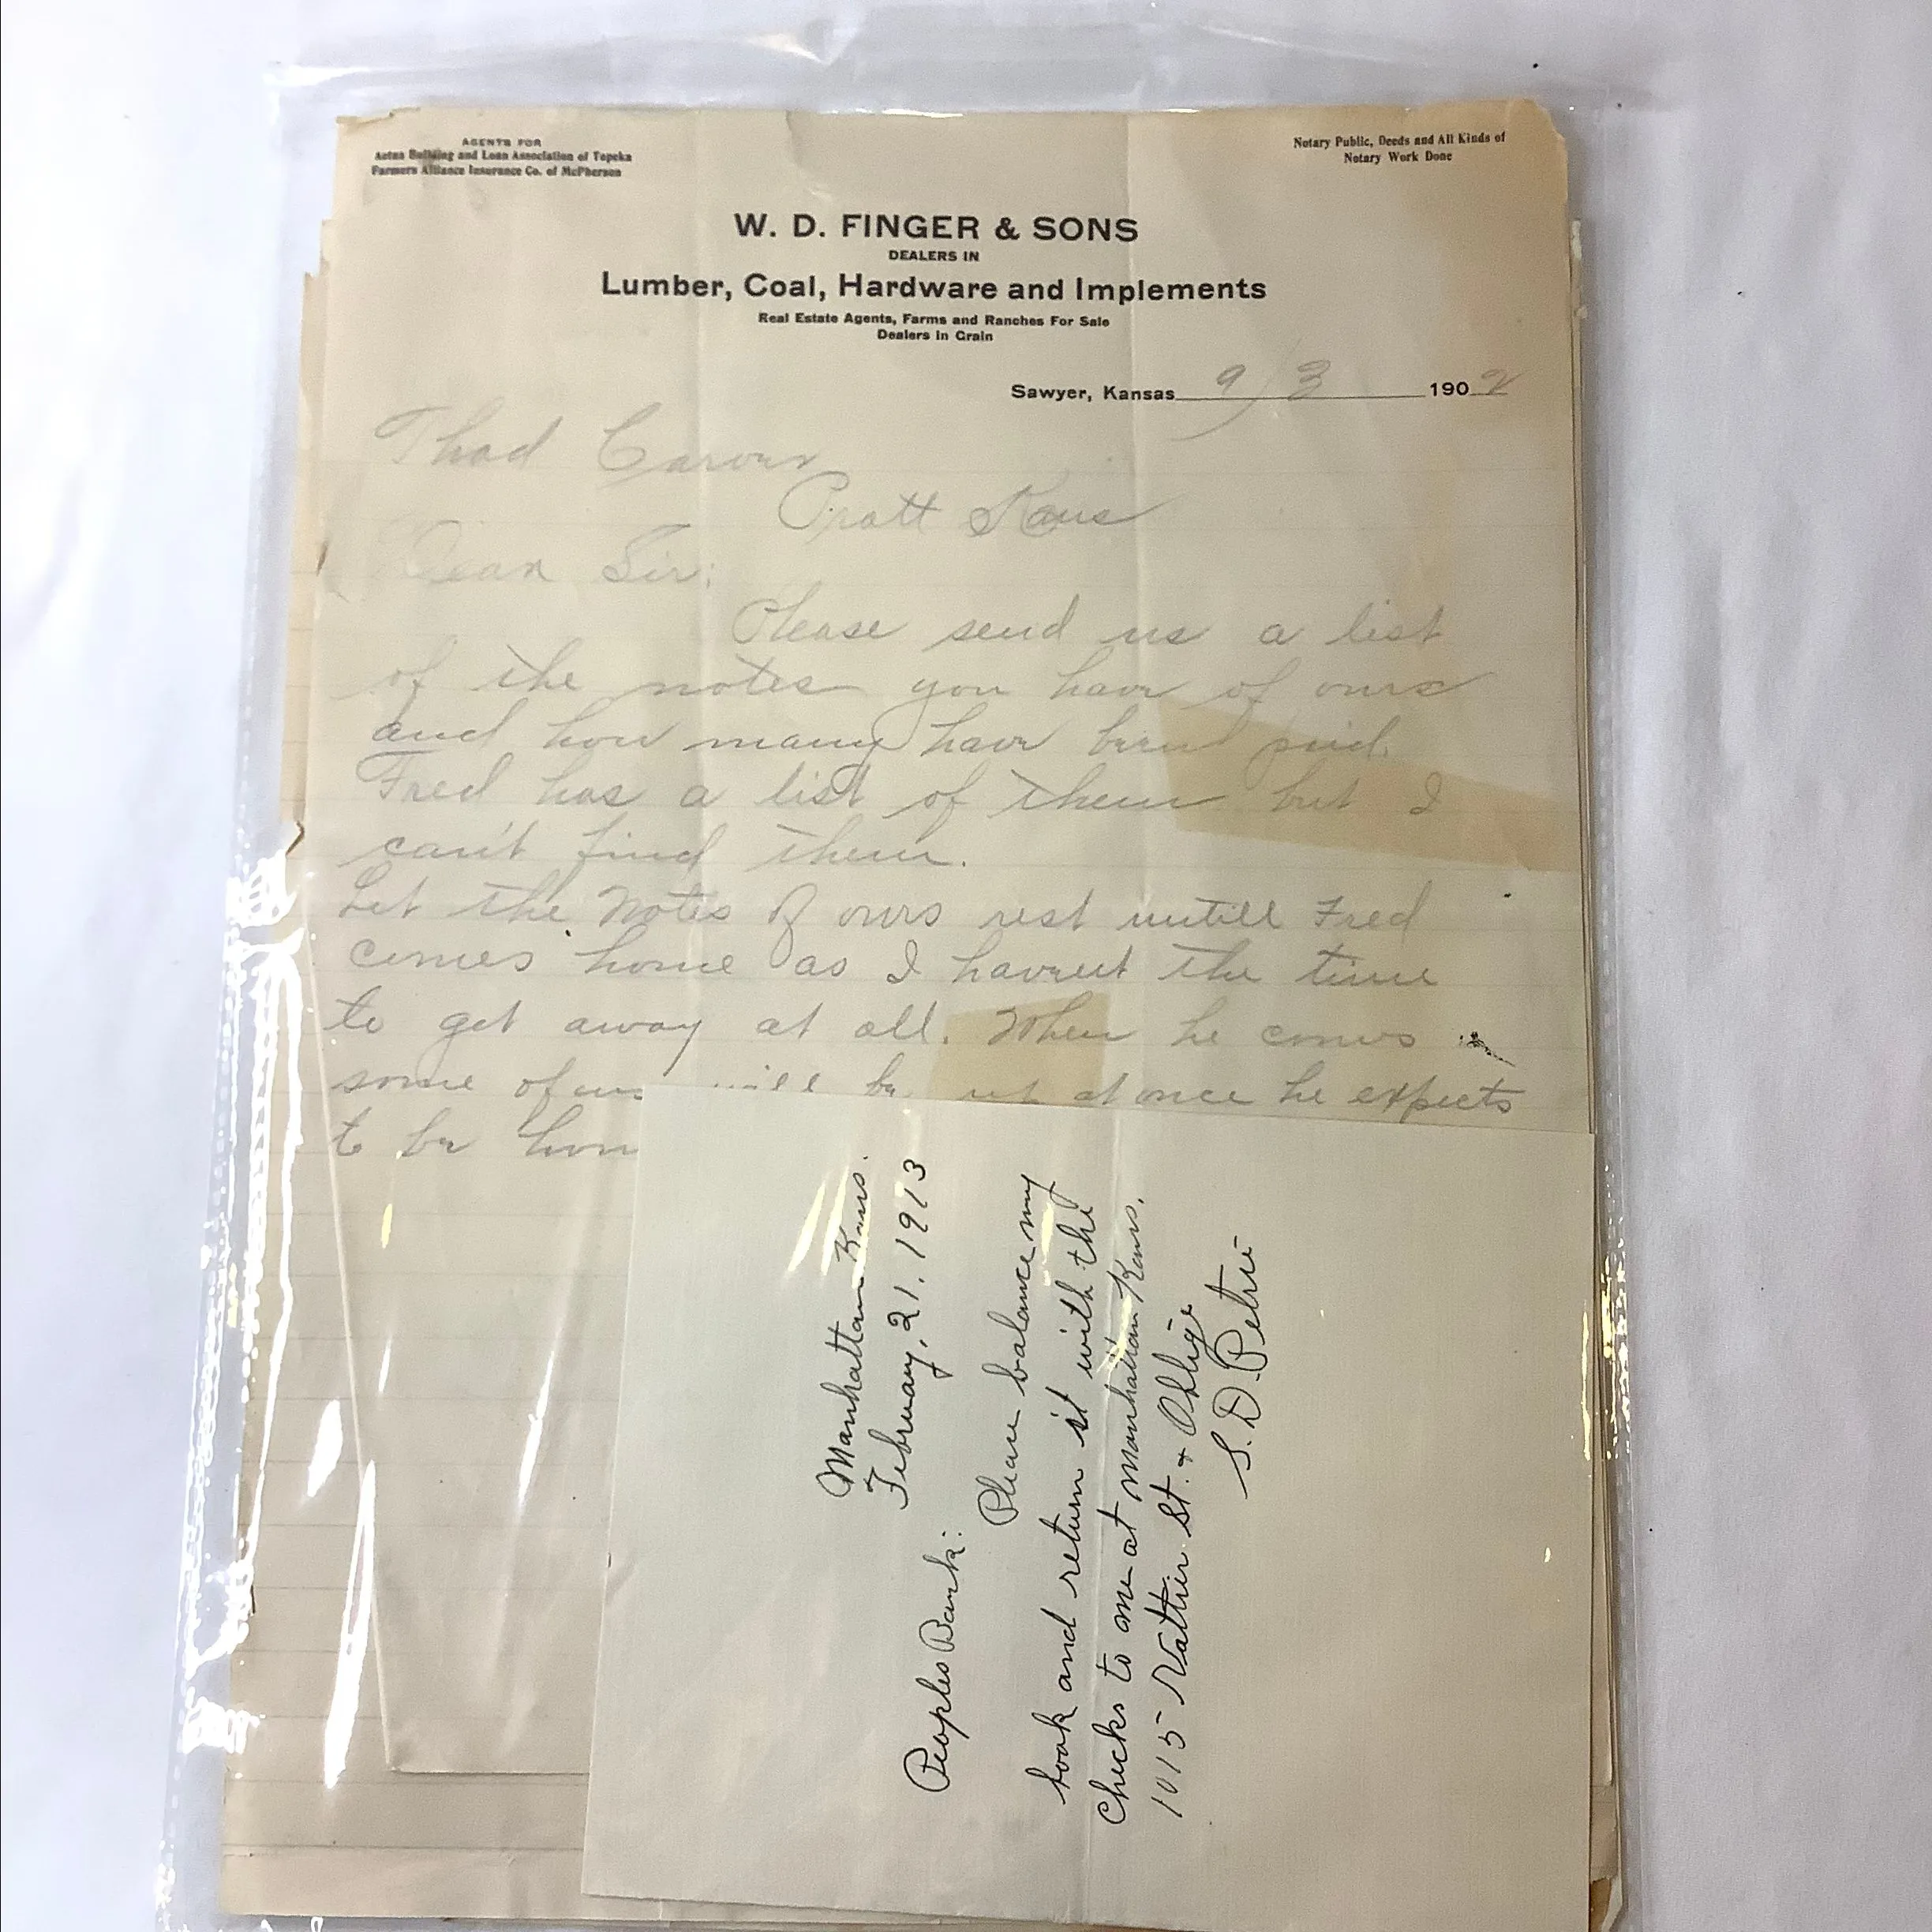 AGENTS FOR
Aetna Building and Loan Association of Topeka
Farmers Alliance Insurance Co. of McPherson
Notary Public, Deeds and All Kinds of
Notary Work Done
W. D. FINGER & SONS
DEALERS IN
Lumber, Coal, Hardware and Implements
Real Estate Agents, Farms and Ranches For Sale
Dealers in Grain
Sawyer, Kansas 9/3 1902
Thad Carver
Pratt Kans
Dear Sir:
Please send us a list
of the notes you have of ours
and how many have been paid.
Fred has a list of them but I
can't find them.
Let the Notes of ours rest untill Fred
comes home as I havent the time
to get away at all. When he comes
some of us will be up at once he expects
to be hom
Manhattan Kans.
February, 21, 1913
Peoples Bank:
Please balance my
book and return it with the
checks to me at Manhattan Kans.
1015 Vattier St. + Oblige
S. D. Petrie